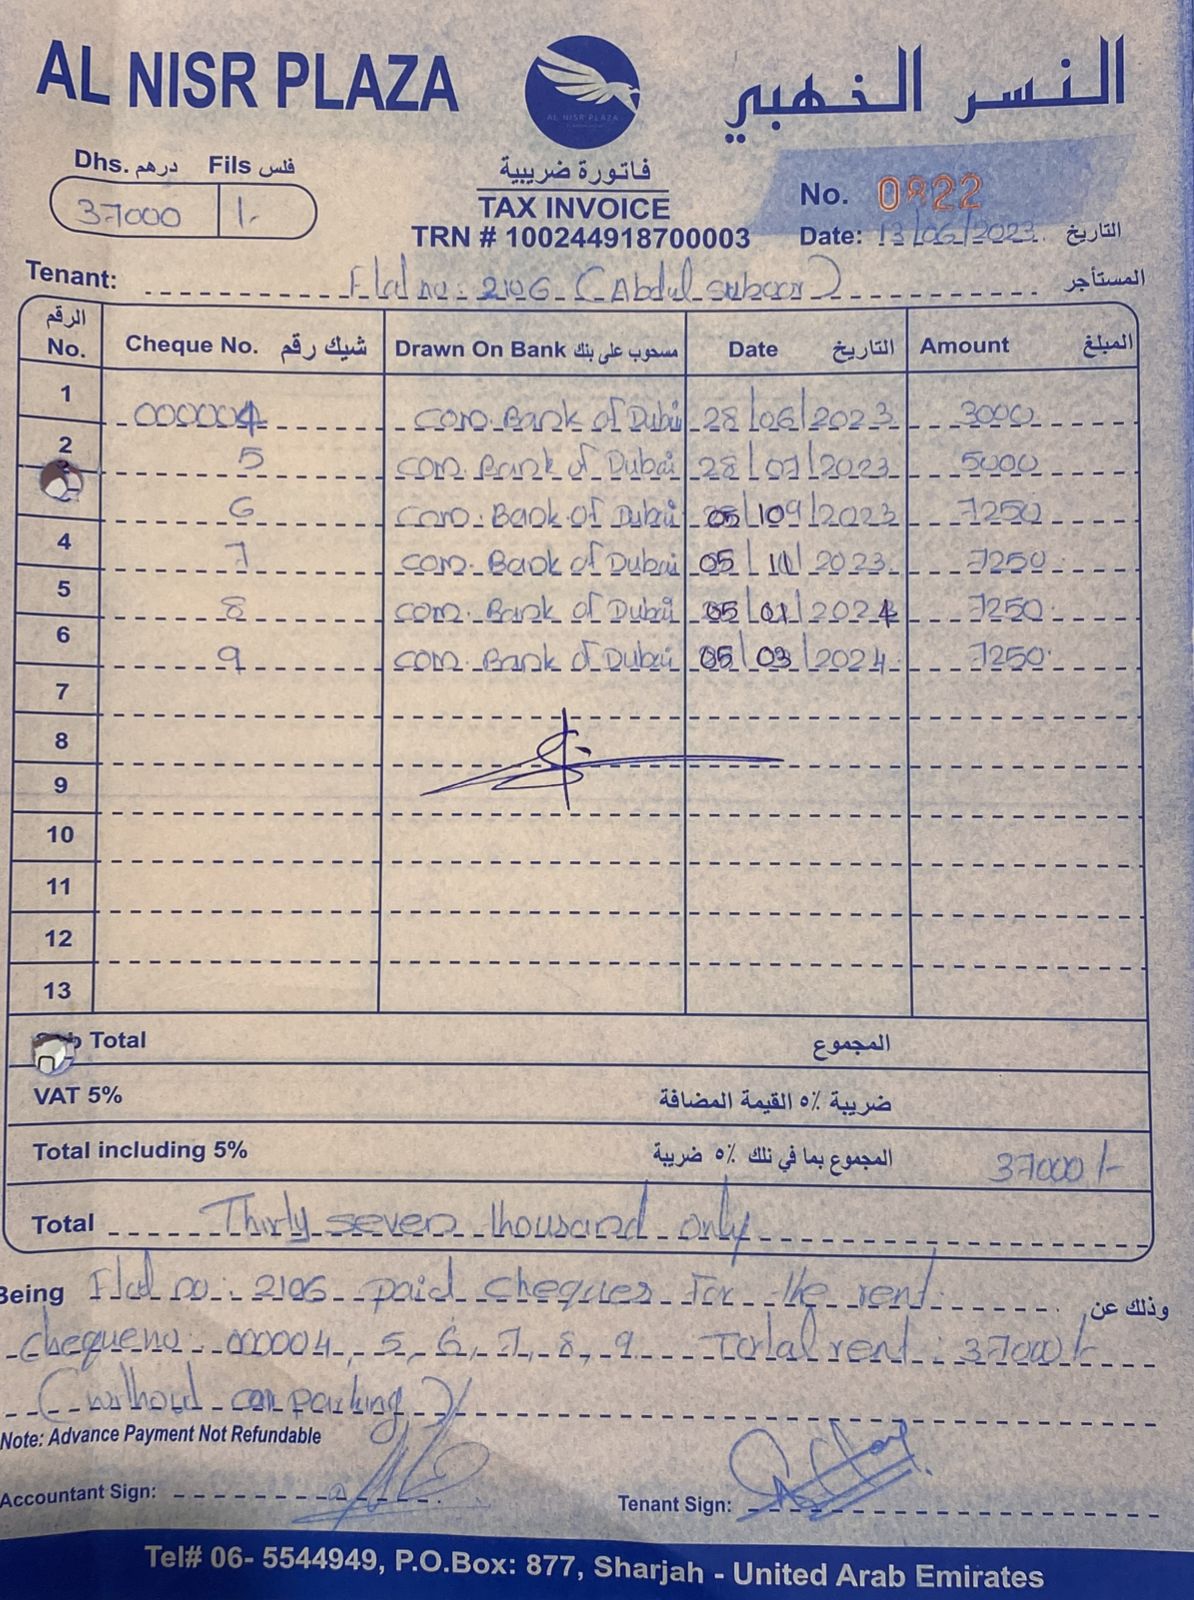 AL NISR PLAZA
AL NISR PLAZA
النسر الخهبي
Dhs. درهم Fils فلس
37000 /-
فاتورة ضريبية
TAX INVOICE
TRN # 100244918700003
No. 0822
Date: 13/06/2023 التاريخ
Tenant: Flat no: 2106 (Abdul suboor) المستأجر
الرقم No. Cheque No. شيك رقم Drawn On Bank مسحوب على بنك Date التاريخ Amount المبلغ
1 000004 com. Bank of Dubai 28/06/2023 3000
2 5 com. Bank of Dubai 28/07/2023 5000
6 com. Bank of Dubai 05/09/2023 7250
4 7 com. Bank of Dubai 05/11/2023 7250
5 8 com. Bank of Dubai 05/01/2024 7250
6 9 com. Bank of Dubai 05/03/2024 7250
7
8
9
10
11
12
13
Total المجموع
VAT 5% ضريبة ٥٪ القيمة المضافة
Total including 5% المجموع بما في نلك ٥٪ ضريبة 37000/-
Total Thirty seven thousand only
Being Flat no: 2106 paid cheques for the rent وذلك عن
cheque no: 000004, 5, 6, 7, 8, 9 Total rent: 37000/-
(without car parking)
Note: Advance Payment Not Refundable
Accountant Sign:
Tenant Sign:
Tel# 06- 5544949, P.O.Box: 877, Sharjah - United Arab Emirates